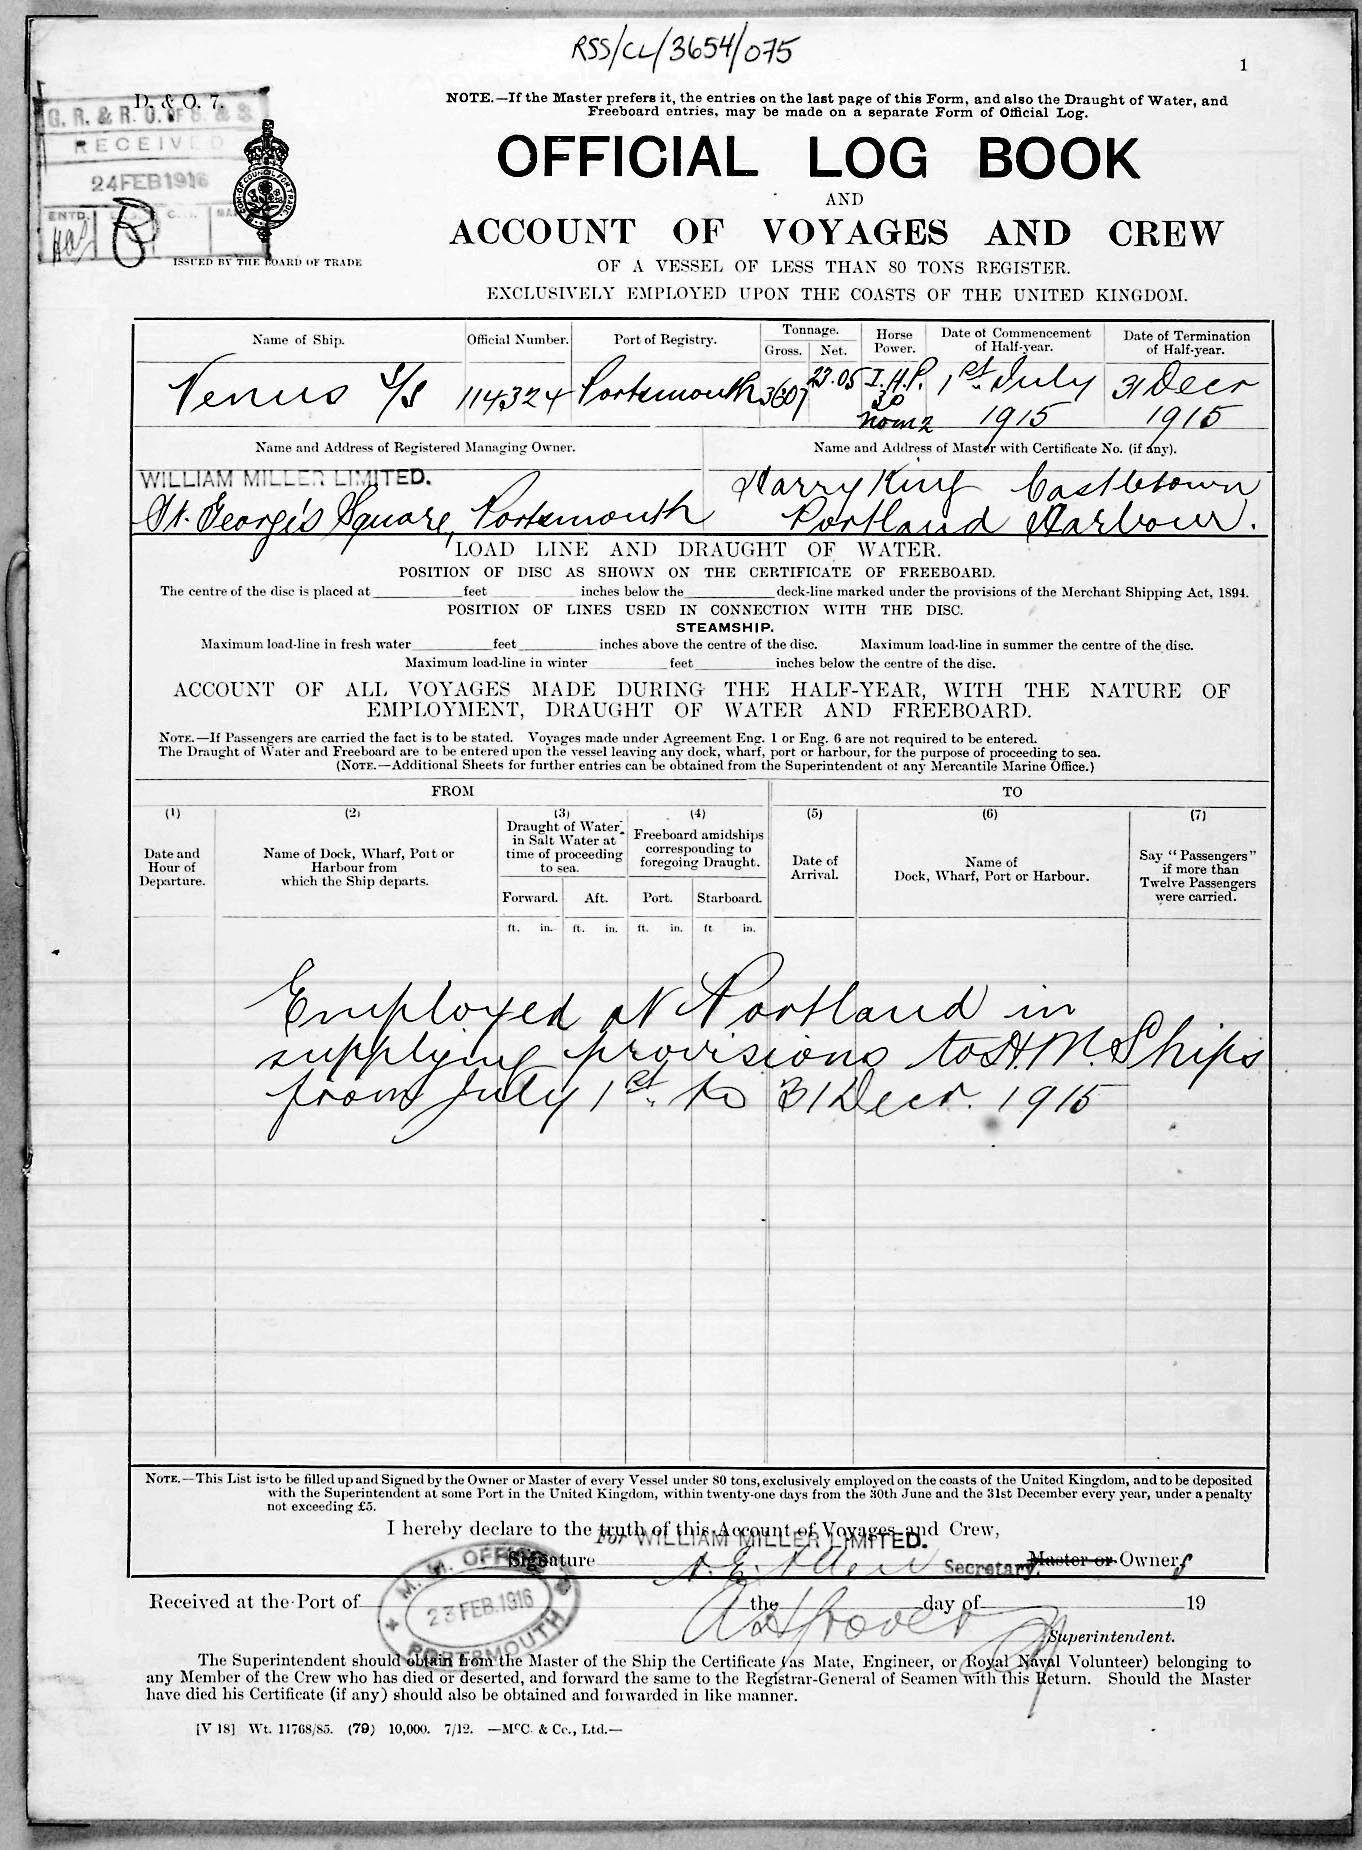 RSS/CL/3654/075
1
D. & O. 7.
G. R. & R. O. OF S. & S.
RECEIVED
24 FEB 1916
ENTD.
ISSUED BY THE BOARD OF TRADE
NOTE.—If the Master prefers it, the entries on the last page of this Form, and also the Draught of Water, and
Freeboard entries, may be made on a separate Form of Official Log.
OFFICIAL LOG BOOK
AND
ACCOUNT OF VOYAGES AND CREW
OF A VESSEL OF LESS THAN 80 TONS REGISTER.
EXCLUSIVELY EMPLOYED UPON THE COASTS OF THE UNITED KINGDOM.
Name of Ship. Official Number. Port of Registry. Tonnage. Gross. Net. Horse Power. Date of Commencement of Half-year. Date of Termination of Half-year.
Venus S/S 114324 Portsmouth 3607 23.05 I.H.P. 30 Nom 2 1st July 1915 31 Decr 1915
Name and Address of Registered Managing Owner. Name and Address of Master with Certificate No. (if any).
WILLIAM MILLER LIMITED. Harry King Castletown
St. George's Square, Portsmouth Portland Harbour.
LOAD LINE AND DRAUGHT OF WATER.
POSITION OF DISC AS SHOWN ON THE CERTIFICATE OF FREEBOARD.
The centre of the disc is placed at feet inches below the deck-line marked under the provisions of the Merchant Shipping Act, 1894.
POSITION OF LINES USED IN CONNECTION WITH THE DISC.
STEAMSHIP.
Maximum load-line in fresh water feet inches above the centre of the disc. Maximum load-line in summer the centre of the disc.
Maximum load-line in winter feet inches below the centre of the disc.
ACCOUNT OF ALL VOYAGES MADE DURING THE HALF-YEAR, WITH THE NATURE OF
EMPLOYMENT, DRAUGHT OF WATER AND FREEBOARD.
NOTE.—If Passengers are carried the fact is to be stated. Voyages made under Agreement Eng. 1 or Eng. 6 are not required to be entered.
The Draught of Water and Freeboard are to be entered upon the vessel leaving any dock, wharf, port or harbour, for the purpose of proceeding to sea.
(NOTE.—Additional Sheets for further entries can be obtained from the Superintendent of any Mercantile Marine Office.)
FROM TO
(1) (2) (3) (4) (5) (6) (7)
Date and Hour of Departure. Name of Dock, Wharf, Port or Harbour from which the Ship departs. Draught of Water in Salt Water at time of proceeding to sea. Freeboard amidships corresponding to foregoing Draught. Date of Arrival. Name of Dock, Wharf, Port or Harbour. Say "Passengers" if more than Twelve Passengers were carried.
Forward. Aft. Port. Starboard.
ft. in. ft. in. ft. in. ft in.
Employed at Portland in
supplying provisions to H.M. Ships
from July 1st to 31 Decr. 1915
NOTE.—This List is to be filled up and Signed by the Owner or Master of every Vessel under 80 tons, exclusively employed on the coasts of the United Kingdom, and to be deposited
with the Superintendent at some Port in the United Kingdom, within twenty-one days from the 30th June and the 31st December every year, under a penalty
not exceeding £5.
I hereby declare to the truth of this Account of Voyages and Crew,
For WILLIAM MILLER LIMITED.
Signature Secretary. Master or Owners
M. M. OFFICE
23 FEB. 1916
PORTSMOUTH
Received at the Port of the day of 19
Superintendent.
The Superintendent should obtain from the Master of the Ship the Certificate (as Mate, Engineer, or Royal Naval Volunteer) belonging to
any Member of the Crew who has died or deserted, and forward the same to the Registrar-General of Seamen with this Return. Should the Master
have died his Certificate (if any) should also be obtained and forwarded in like manner.
[V 18] Wt. 11768/85. (79) 10,000. 7/12. —McC. & Co., Ltd.—